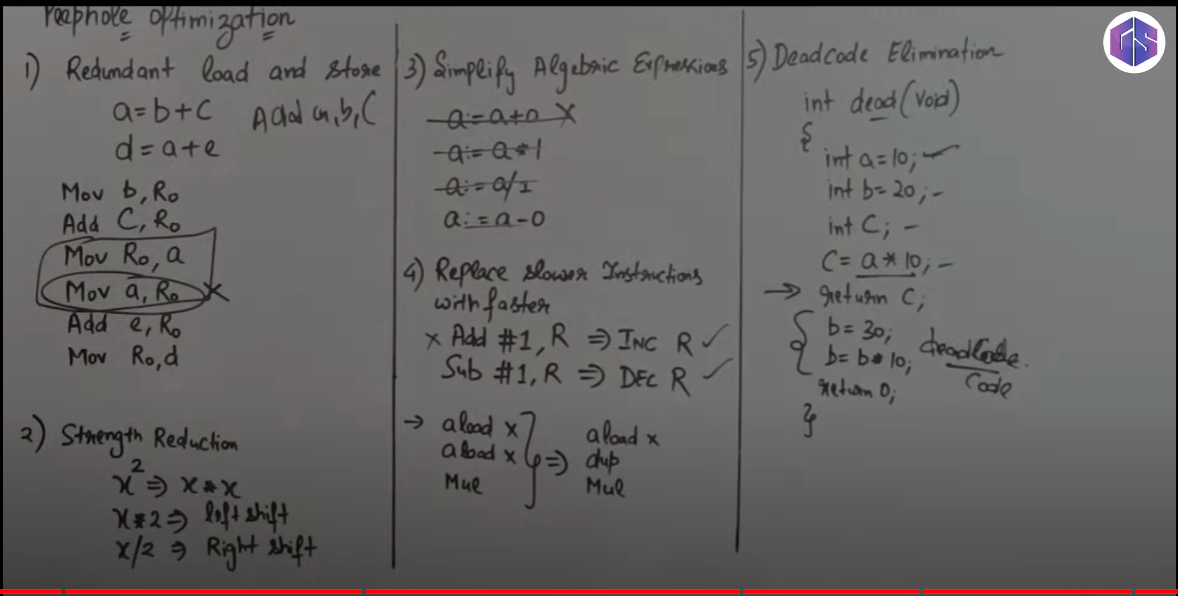 Peephole Optimization
1) Redundant load and store
a=b+c Add a,b,C
d=a+e
Mov b,R₀
Add C,R₀
Mov R₀,a
Mov a,R₀ X
Add e,R₀
Mov R₀,d
2) Strength Reduction
x² ⇒ x*x
x*2 ⇒ left shift
x/2 ⇒ Right shift
3) Simplify Algebric Expressions
a:=a+0 X
a:=a*1
a:=a/1
a:=a-0
4) Replace slower Instructions
with faster
x Add #1, R ⇒ INC R ✓
Sub #1, R ⇒ DEC R ✓
→ aload x } ⇒ aload x
aload x dup
Mul Mul
5) Deadcode Elimination
int dead(void)
{
int a=10; ✓
int b=20; -
int C; -
C= a*10; -
→ return C;
{ b=30;
b= b*10; deadCode
return 0; Code
}